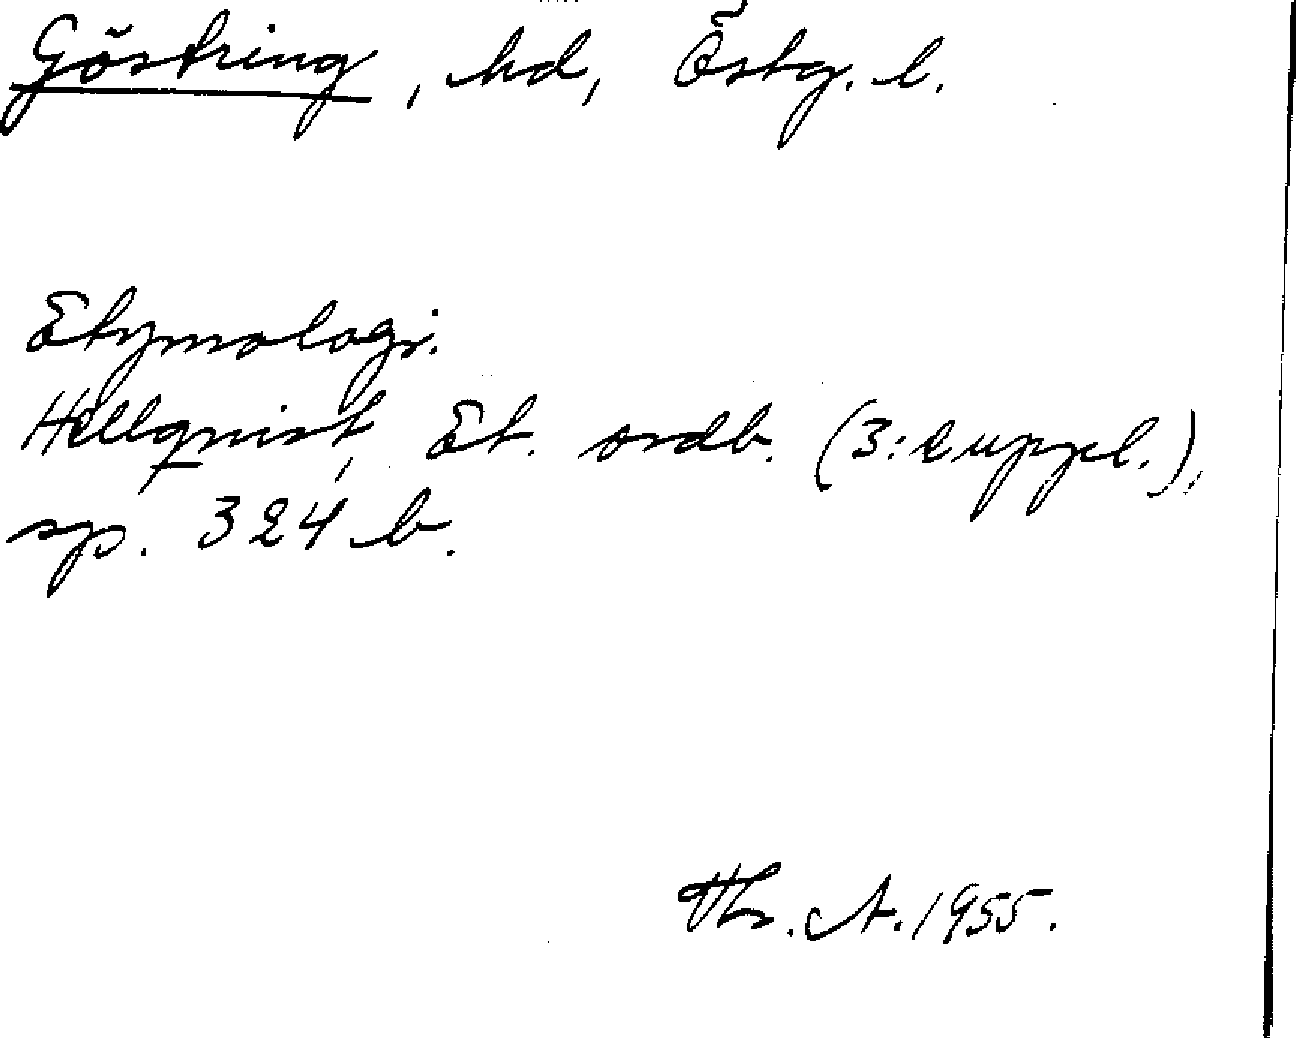 Göstring, hd, Östg. l.
Etymologi.
Hellquist, Et. ordb. (3:e uppl.),
sp. 324 b.
Th. A. 1955.